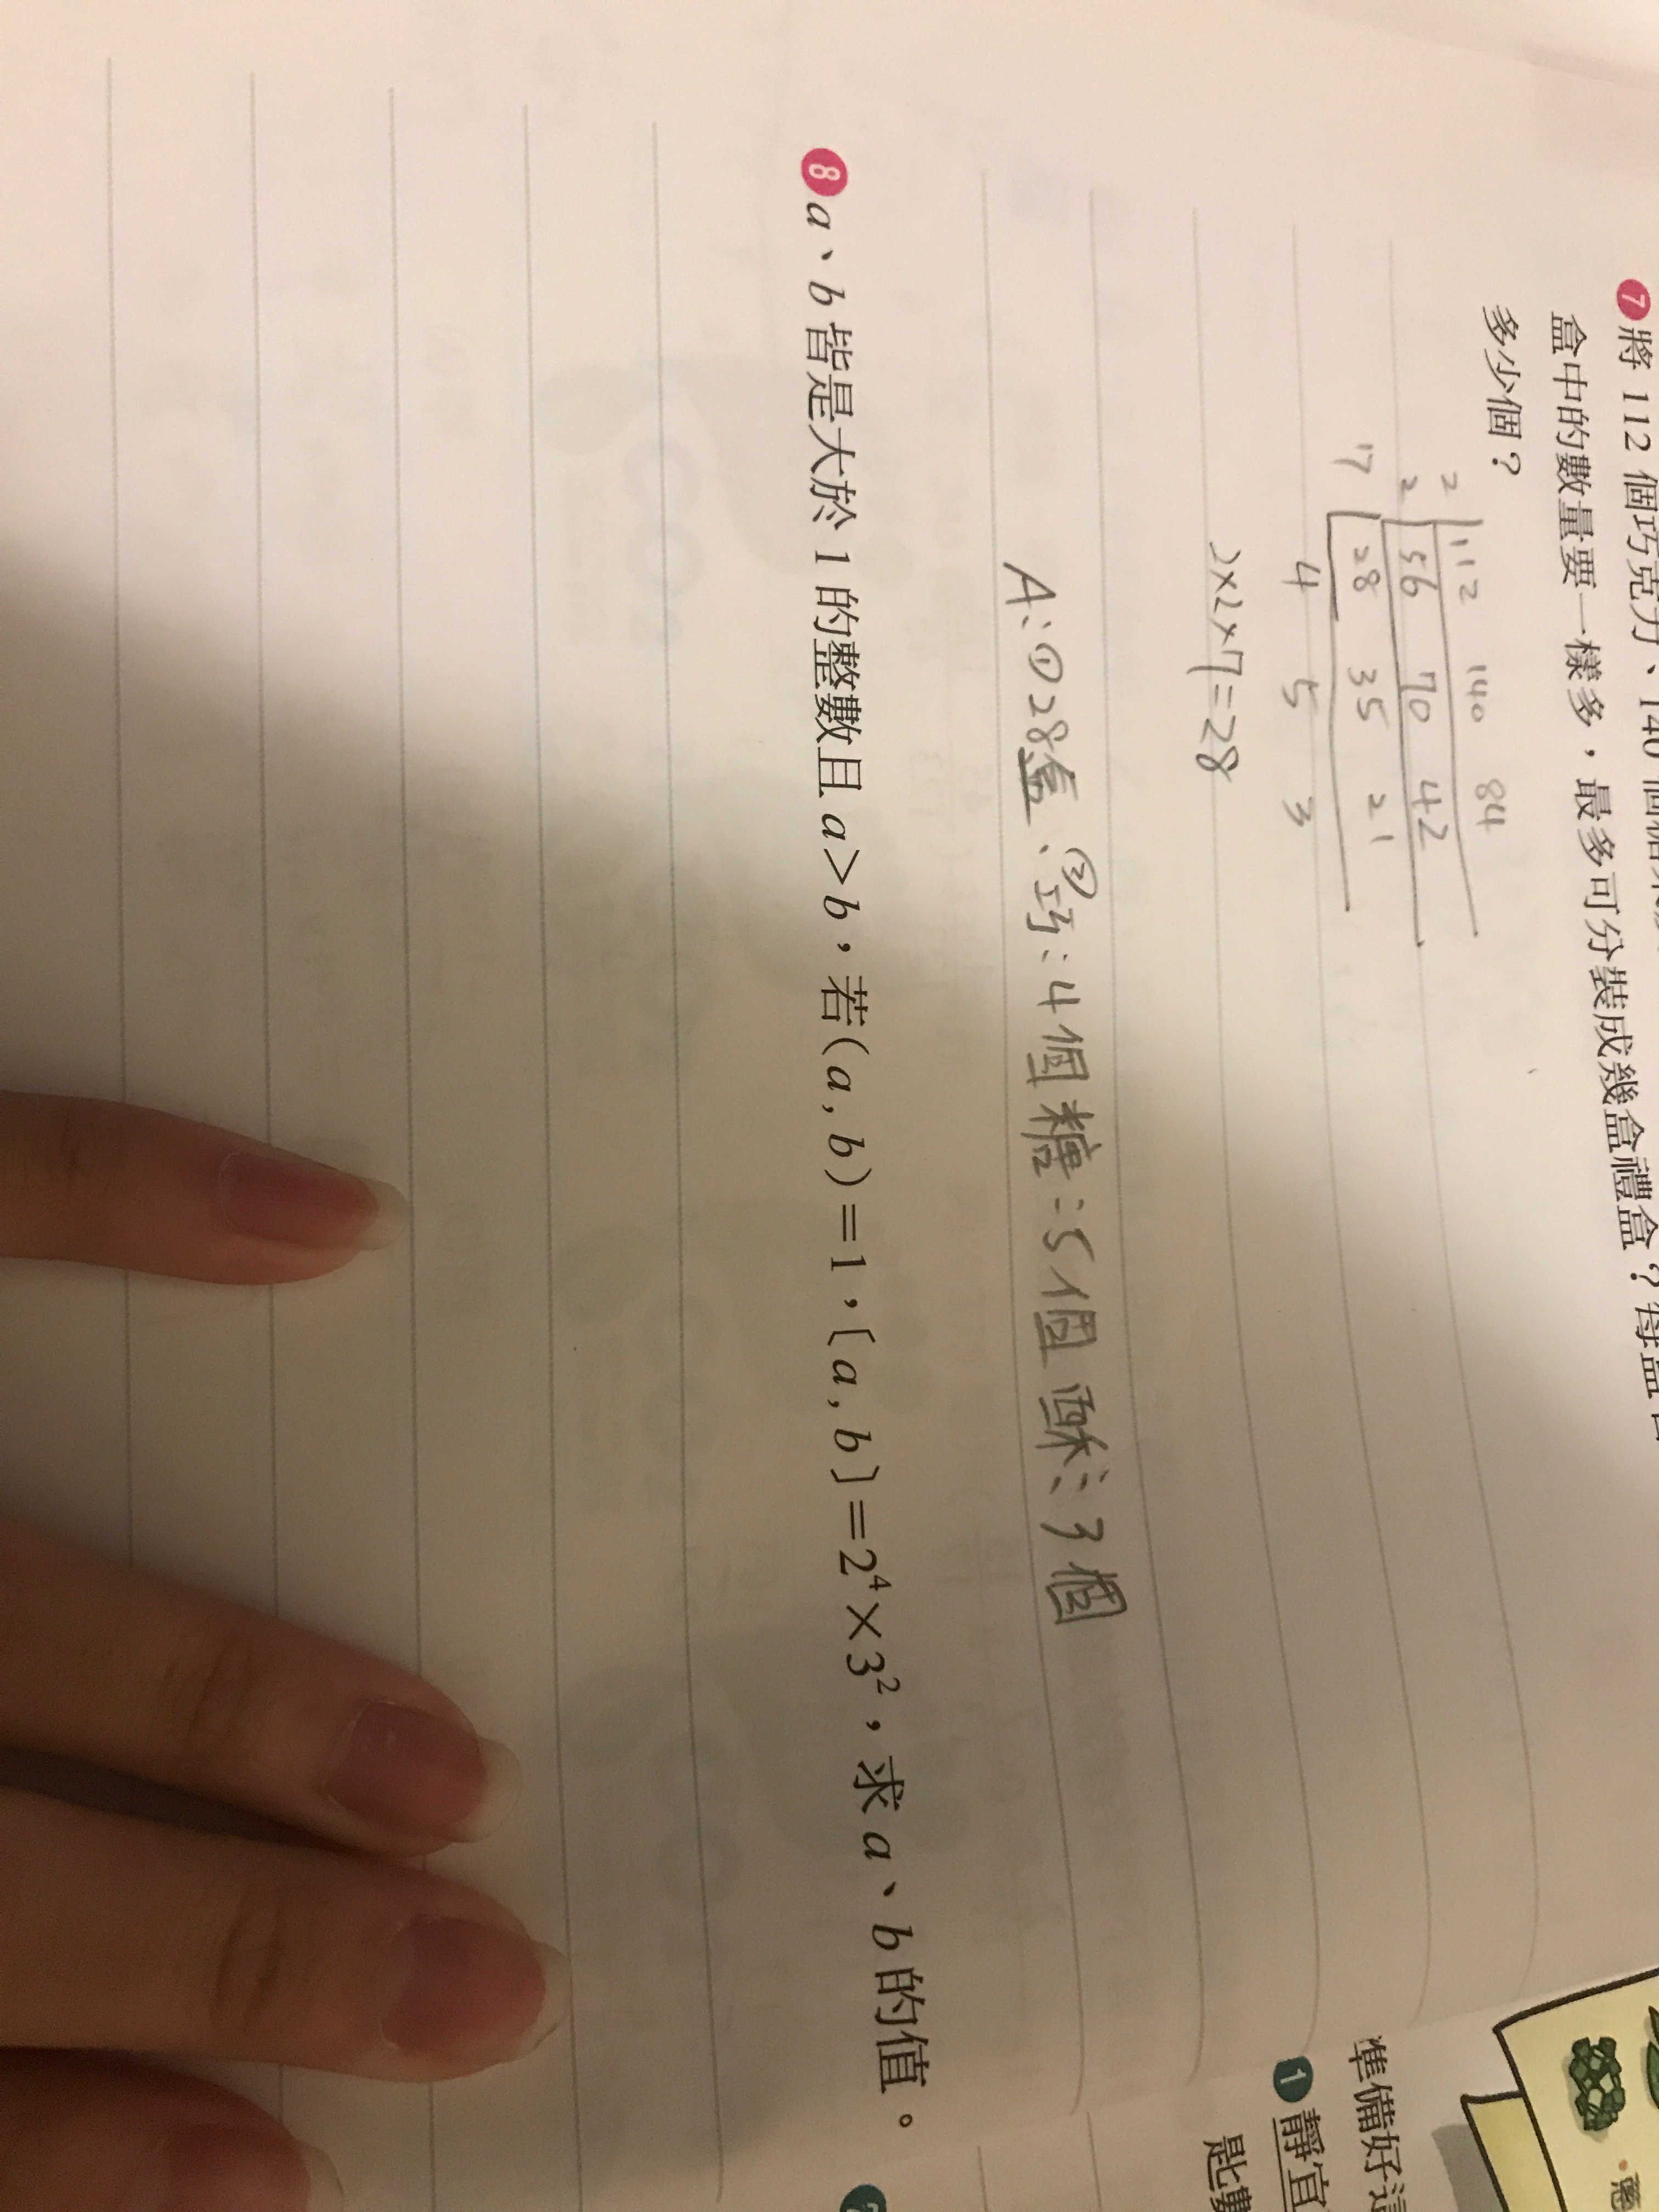 7 將 112 個巧克力、140 個
盒中的數量要一樣多，最多可分裝成幾盒禮盒？每盒
多少個？
2 112 140 84
2 56 70 42
7 28 35 21
4 5 3
2×2×7=28
A:①28盒、②巧:4個糖:5個酥:3個
8 a、b 皆是大於 1 的整數且 a>b，若(a, b)=1，〔a, b〕=2⁴×3²，求 a、b 的值。
準備好這
1 靜宜
匙數